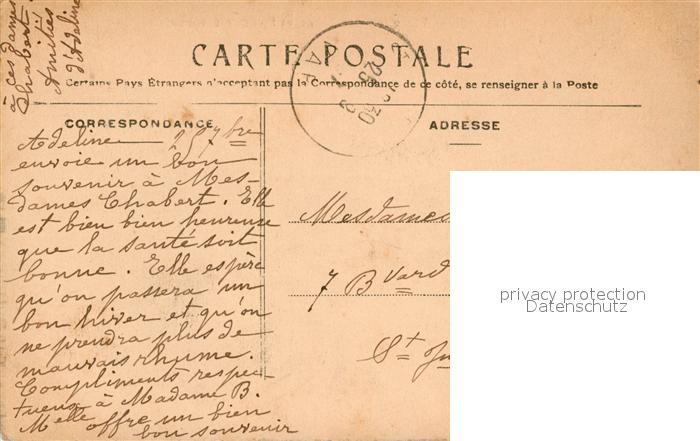 à ces dames
Chabert.
Amitiés
d'Adeline
CARTE POSTALE
Certains Pays Étrangers n'acceptant pas la Correspondance de ce côté, se renseigner à la Poste
CORRESPONDANCE
ADRESSE
Adeline 25 7bre
envoie un bon
souvenir à Mes-
dames Chabert. Elle
est bien bien heureuse
que la santé soit
bonne. Elle espère
qu'on passera un
bon hiver et qu'on
ne prendra plus de
mauvais rhume.
Compliments respec-
tueux à Madame B.
Melle offre un bien
bon souvenir
Mesdames
7 Bvard
St
privacy protection
Datenschutz